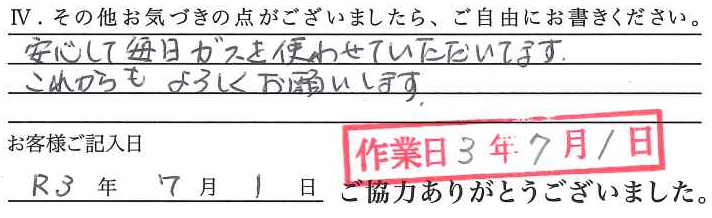 Ⅳ. その他お気づきの点がございましたら、ご自由にお書きください。
安心して毎日ガスを使わせていただいてます.
これからも よろしくお願いします.
お客様ご記入日
作業日 3 年 7 月 1 日
R3 年 7 月 1 日 ご協力ありがとうございました。